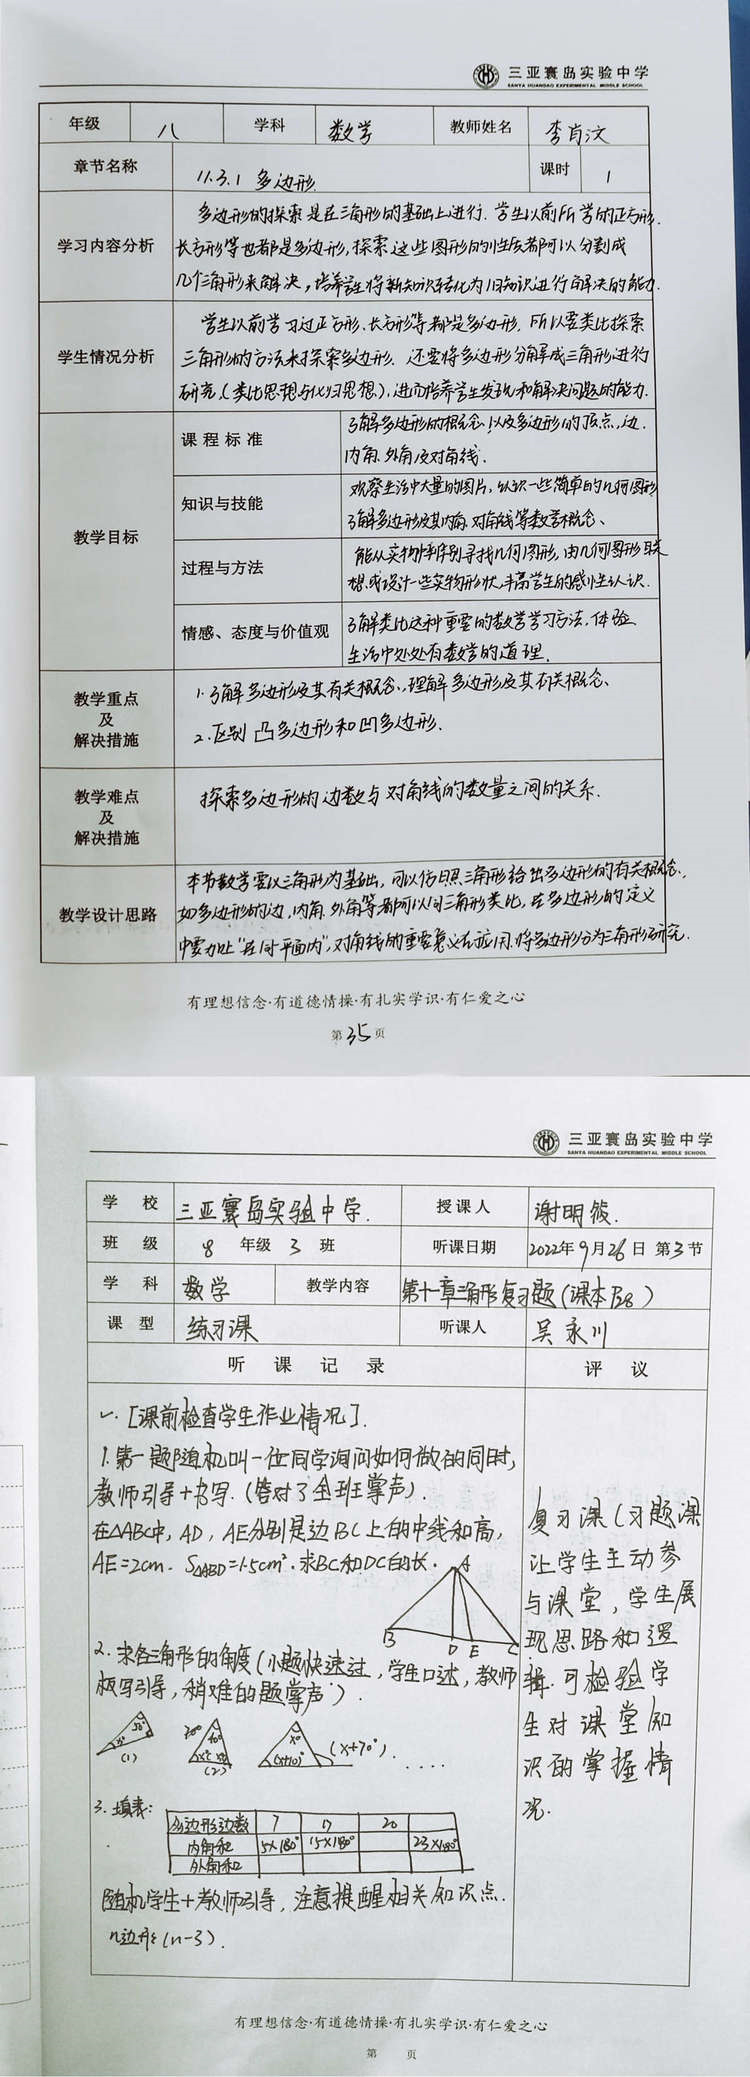 三亚寰岛实验中学
SANYA HUANDAO EXPERIMENTAL MIDDLE SCHOOL
年级 八 学科 数学 教师姓名 李肖汶
章节名称 11.3.1 多边形 课时 1
学习内容分析
多边形的探索是在三角形的基础上进行.学生以前所学的正方形.
长方形等也都是多边形,探索这些图形的性质都可以分割成
几个三角形来解决,培养学生将新知识转化为旧知识进行解决的能力.
学生情况分析
学生以前学习过正方形、长方形等都是多边形,所以要类比探索
三角形的方法来探索多边形.还要将多边形分解成三角形进行
研究.(类比思想与化归思想),进而培养学生发现和解决问题的能力.
教学目标
课程标准
了解多边形的概念以及多边形的顶点,边.
内角.外角及对角线.
知识与技能
观察生活中大量的图片,认识一些简单的几何图形
了解多边形及其内角.对角线等数学概念、
过程与方法
能从实物中辨别寻找几何图形,由几何图形联
想或设计一些实物形状,丰富学生的感性认识.
情感、态度与价值观
了解类比这种重要的数学学习方法,体验
生活中处处有数学的道理.
教学重点
及
解决措施
1.了解多边形及其有关概念、理解多边形及其有关概念、
2.区别凸多边形和凹多边形.
教学难点
及
解决措施
探索多边形的边数与对角线的数量之间的关系.
教学设计思路
本节教学要以三角形为基础,可以仿照三角形给出多边形的有关概念.
如多边形的边,内角.外角等都可以同三角形类比,在多边形的定义
中要加上"在同一平面内",对角线的重要意义在应用.将多边形分为三角形研究.
有理想信念·有道德情操·有扎实学识·有仁爱之心
第35页
三亚寰岛实验中学
SANYA HUANDAO EXPERIMENTAL MIDDLE SCHOOL
学校 三亚寰岛实验中学. 授课人 谢明筱.
班级 8 年级 3 班 听课日期 2022年9月26日 第3节
学科 数学 教学内容 第十一章三角形复习题(课本P28)
课型 练习课 听课人 吴永川
听课记录 评议
一.[课前检查学生作业情况].
1.第一题随机叫一位同学询问如何做的同时,
教师引导+书写.(答对了全班掌声).
在△ABC中,AD,AE分别是边BC上的中线和高,
AE=2cm. S△ABD=1.5cm².求BC和DC的长.
A
B D E C
2.求各三角形的角度(小题快速过,学生口述,教师
板写引导,稍难的题掌声).
(1)
(2)
x°
(x+10)°
(x+70°).
....
3.填表:
多边形边数 7 17 20
内角和 5×180° 15×180° 23×180°
外角和
随机学生+教师引导,注意提醒相关知识点.
n边形(n-3).
复习课(习题课
让学生主动参
与课堂,学生展
现思路和逻
辑.可检验学
生对课堂知
识的掌握情
况.
有理想信念·有道德情操·有扎实学识·有仁爱之心
第 页